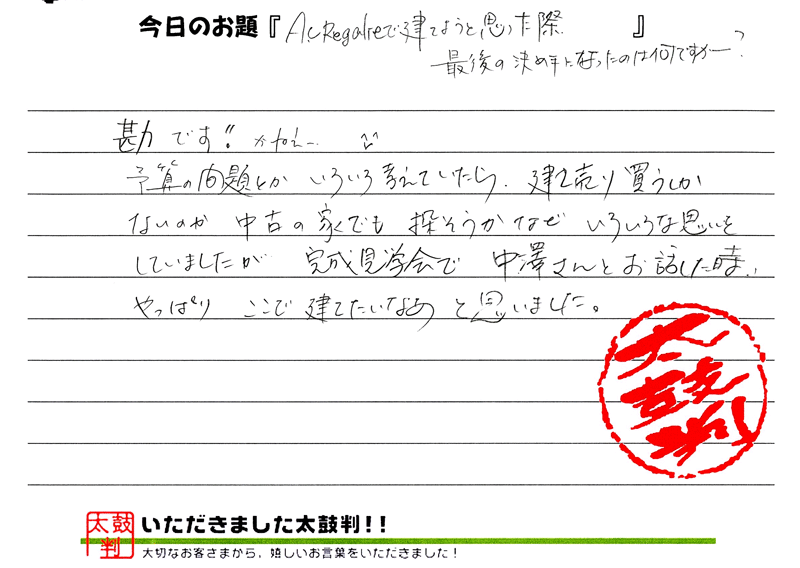 今日のお題『Ac Regalreで建てようと思った際』
最後の決め手になったのは何ですかー?
勘です!! かねぇ…
予算の問題とか いろいろ考えていたら、建て売り買うしか
ないのか 中古の家でも 探そうかなぜ いろいろな思いを
していましたが 完成見学会で 中澤さんとお話した時、
やっぱり ここで 建てたいなあ と思いました。
太鼓判
太鼓判
いただきました太鼓判!!
大切なお客さまから、嬉しいお言葉をいただきました!